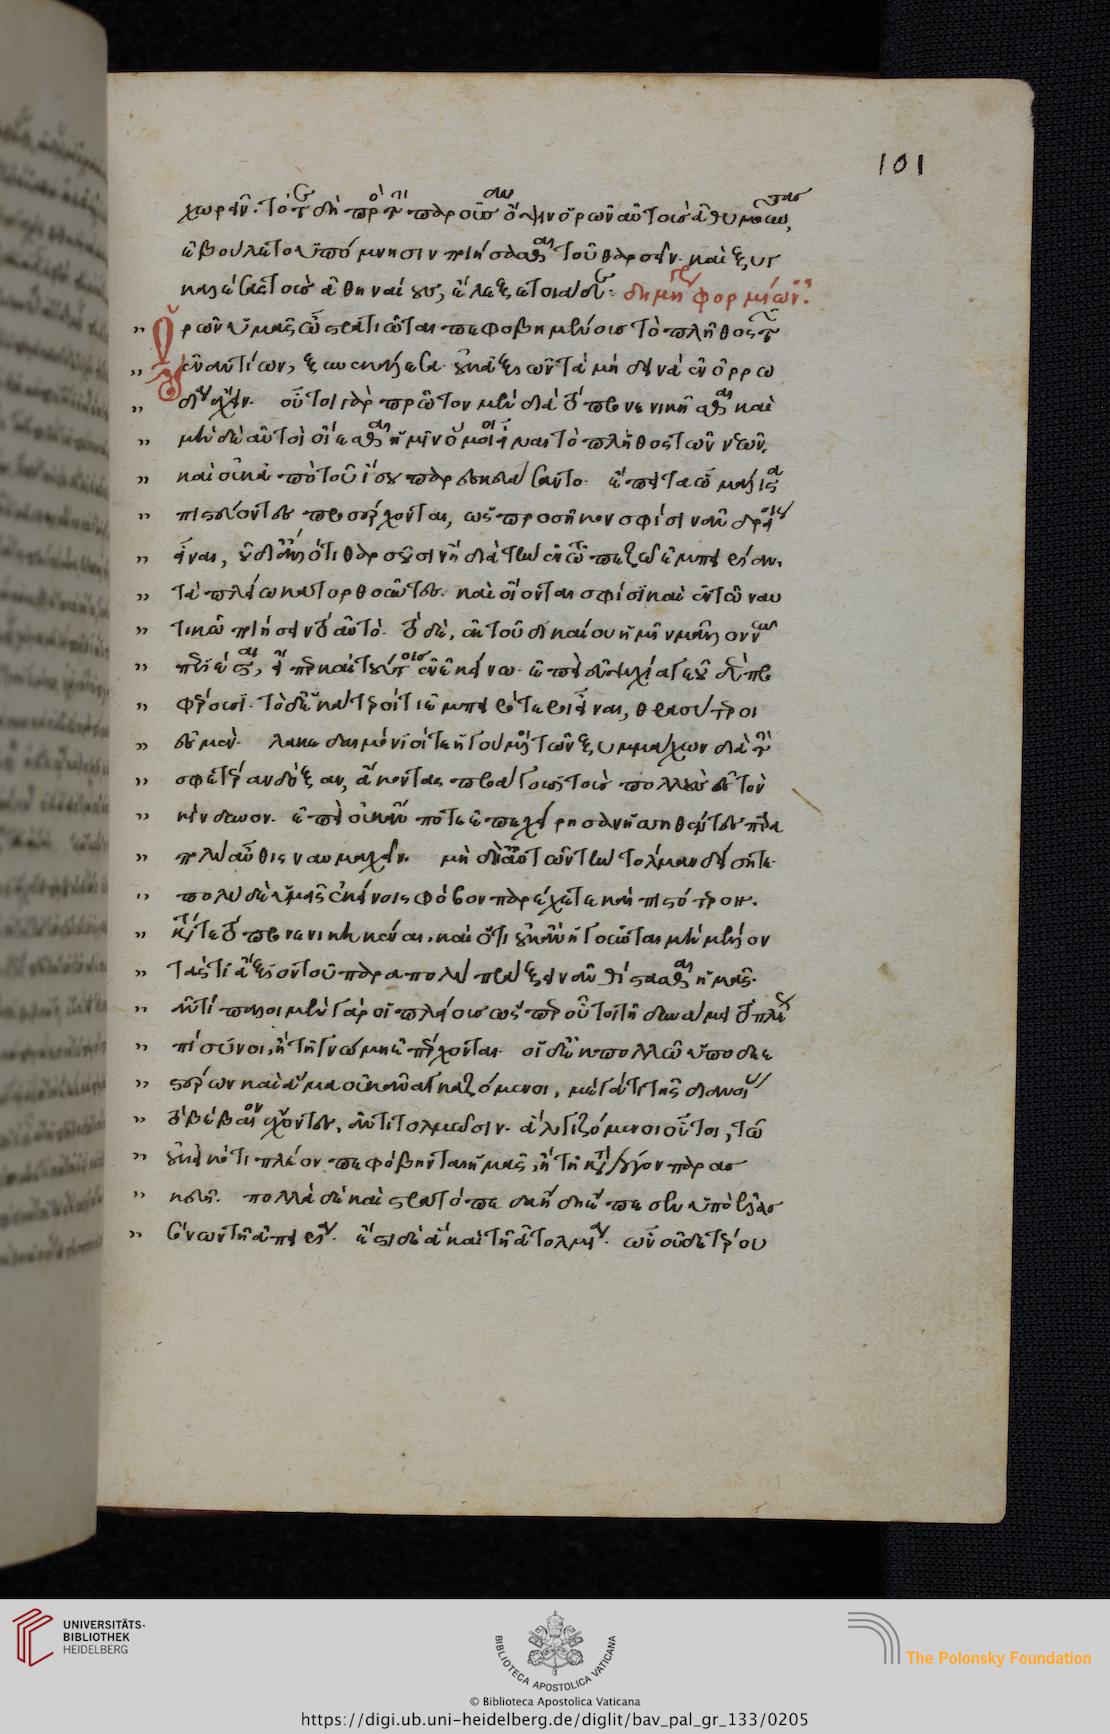 χωρεῖν· τότε δὴ πρὸς τὴν παροῦσαν ὄψιν ὁρῶν αὐτοὺς ἀθυμοῦντας,
ἐβούλετο ὑπόμνησιν ποιήσασθαι τοῦ θαρσεῖν. καὶ ξυγ
καλέσας τοὺς ἀθηναίους, ἔλεξε τοιάδε: δημηγορία φορμίωνος:
Ὁρῶν ὑμᾶς ὦ στρατιῶται πεφοβημένους τὸ πλῆθος τῶν
ἐναντίων, ξυνεκάλεσα· οὐκ ἀξιῶν τὰ μὴ δεινὰ ἐν ὀρρω
δίᾳ ἔχειν. οὗτοι γὰρ πρῶτον μὲν διὰ τὸ προνενικῆσθαι καὶ
μηδὲ αὐτοὶ οἴεσθαι ἡμῖν ὁμοῖοι εἶναι τὸ πλῆθος τῶν νεῶν,
καὶ οὐκ ἀπὸ τοῦ ἴσου παρεσκευάσαντο· ἔπειτα ᾧ μάλιστα
πιστεύοντες προσέρχονται, ὡς προσῆκον σφίσιν ἀνδρείοις
εἶναι, οὐ δι' ἄλλό τι θαρσοῦσιν ἢ διὰ τὴν ἐν τῷ πεζῷ ἐμπειρίαν,
τὰ πλείω κατορθοῦντες. καὶ οἴονται σφίσι καὶ ἐν τῷ ναυ
τικῷ ποιήσειν τὸ αὐτό. τὸ δὲ, ἐκ τοῦ δικαίου ἡμῖν μᾶλλον νῦν
περιέσται, εἴπερ καὶ τούτοις ἐν ἐκείνῳ· ἐπεὶ εὐψυχίᾳ γε οὐδὲν προ
φέρουσι· τῷ δὲ ἑκάτεροί τι ἐμπειρότεροι εἶναι, θρασύτεροι
ἐσμέν. λακεδαιμόνιοί τε ἡγούμενοι τῶν ξυμμάχων διὰ τὴν
σφετέραν δόξαν, ἄκοντας προσάγουσι τοὺς πολλοὺς ἐς τὸν
κίνδυνον. ἐπεὶ οὐκ ἄν ποτε ἐπεχείρησαν ἡσσηθέντες παρὰ
πολὺ αὖθις ναυμαχεῖν. μὴ δὴ αὐτῶν τὴν τόλμαν δείσητε·
πολὺ δὲ ὑμεῖς ἐκείνοις φόβον παρέχετε καὶ πιστότερον.
κατά τε τὸ προνενικηκέναι. καὶ ὅτι οὐκ ἂν ἡγοῦνται μὴ μέλλον
τάς τι ἄξιον τοῦ παρὰ πολὺ πράξειν ἀνθίστασθαι ἡμᾶς.
ἀντίπαλοι μὲν γὰρ οἱ πλείους ὥσπερ οὗτοι τῇ δυνάμει τὸ πλέον
πίσυνοι, ἢ τῇ γνώμῃ ἐπέρχονται. οἱ δ' ἐκ πολλῷ ὑποδεε
στέρων καὶ ἅμα οὐκ ἀναγκαζόμενοι, μέγα τι τῆς διανοίας
τὸ βέβαιον ἔχοντες, ἀντιτολμῶσιν. ἃ λογιζόμενοι οὗτοι, τῷ
οὐκ εἰκότι πλέον πεφόβηνται ἡμᾶς, ἢ τῇ κατὰ λόγον παρασ
κευῇ. πολλὰ δὲ καὶ στρατόπεδα ἤδη ἔπεσεν ὑπὸ ἐλασ
σόνων τῇ ἀπειρίᾳ. ἔστι δὲ ἃ καὶ τῇ ἀτολμίᾳ. ὧν οὐδετέρου
101
UNIVERSITÄTS-
BIBLIOTHEK
HEIDELBERG
BIBLIOTECA APOSTOLICA VATICANA
The Polonsky Foundation
© Biblioteca Apostolica Vaticana
https://digi.ub.uni-heidelberg.de/diglit/bav_pal_gr_133/0205